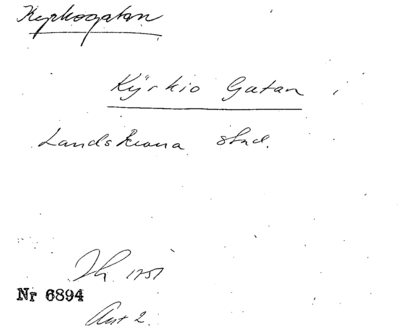 Kyrkogatan
Kÿrkio Gatan i
Landskrona Stad.
Th. 1751
Nr 6894
Aut 2.